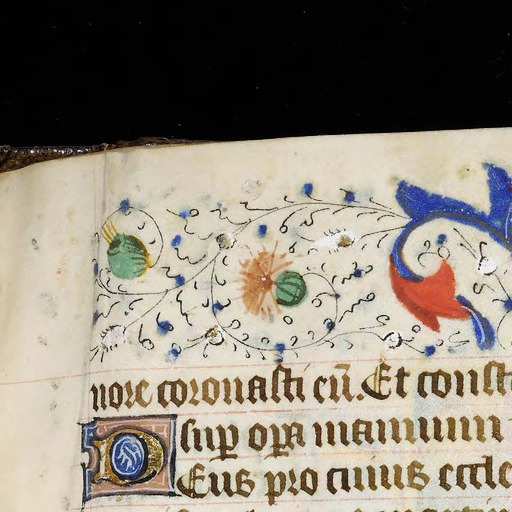 nore coronasti eū. Et const
sup opa manuum
Deus pro cuius eccle